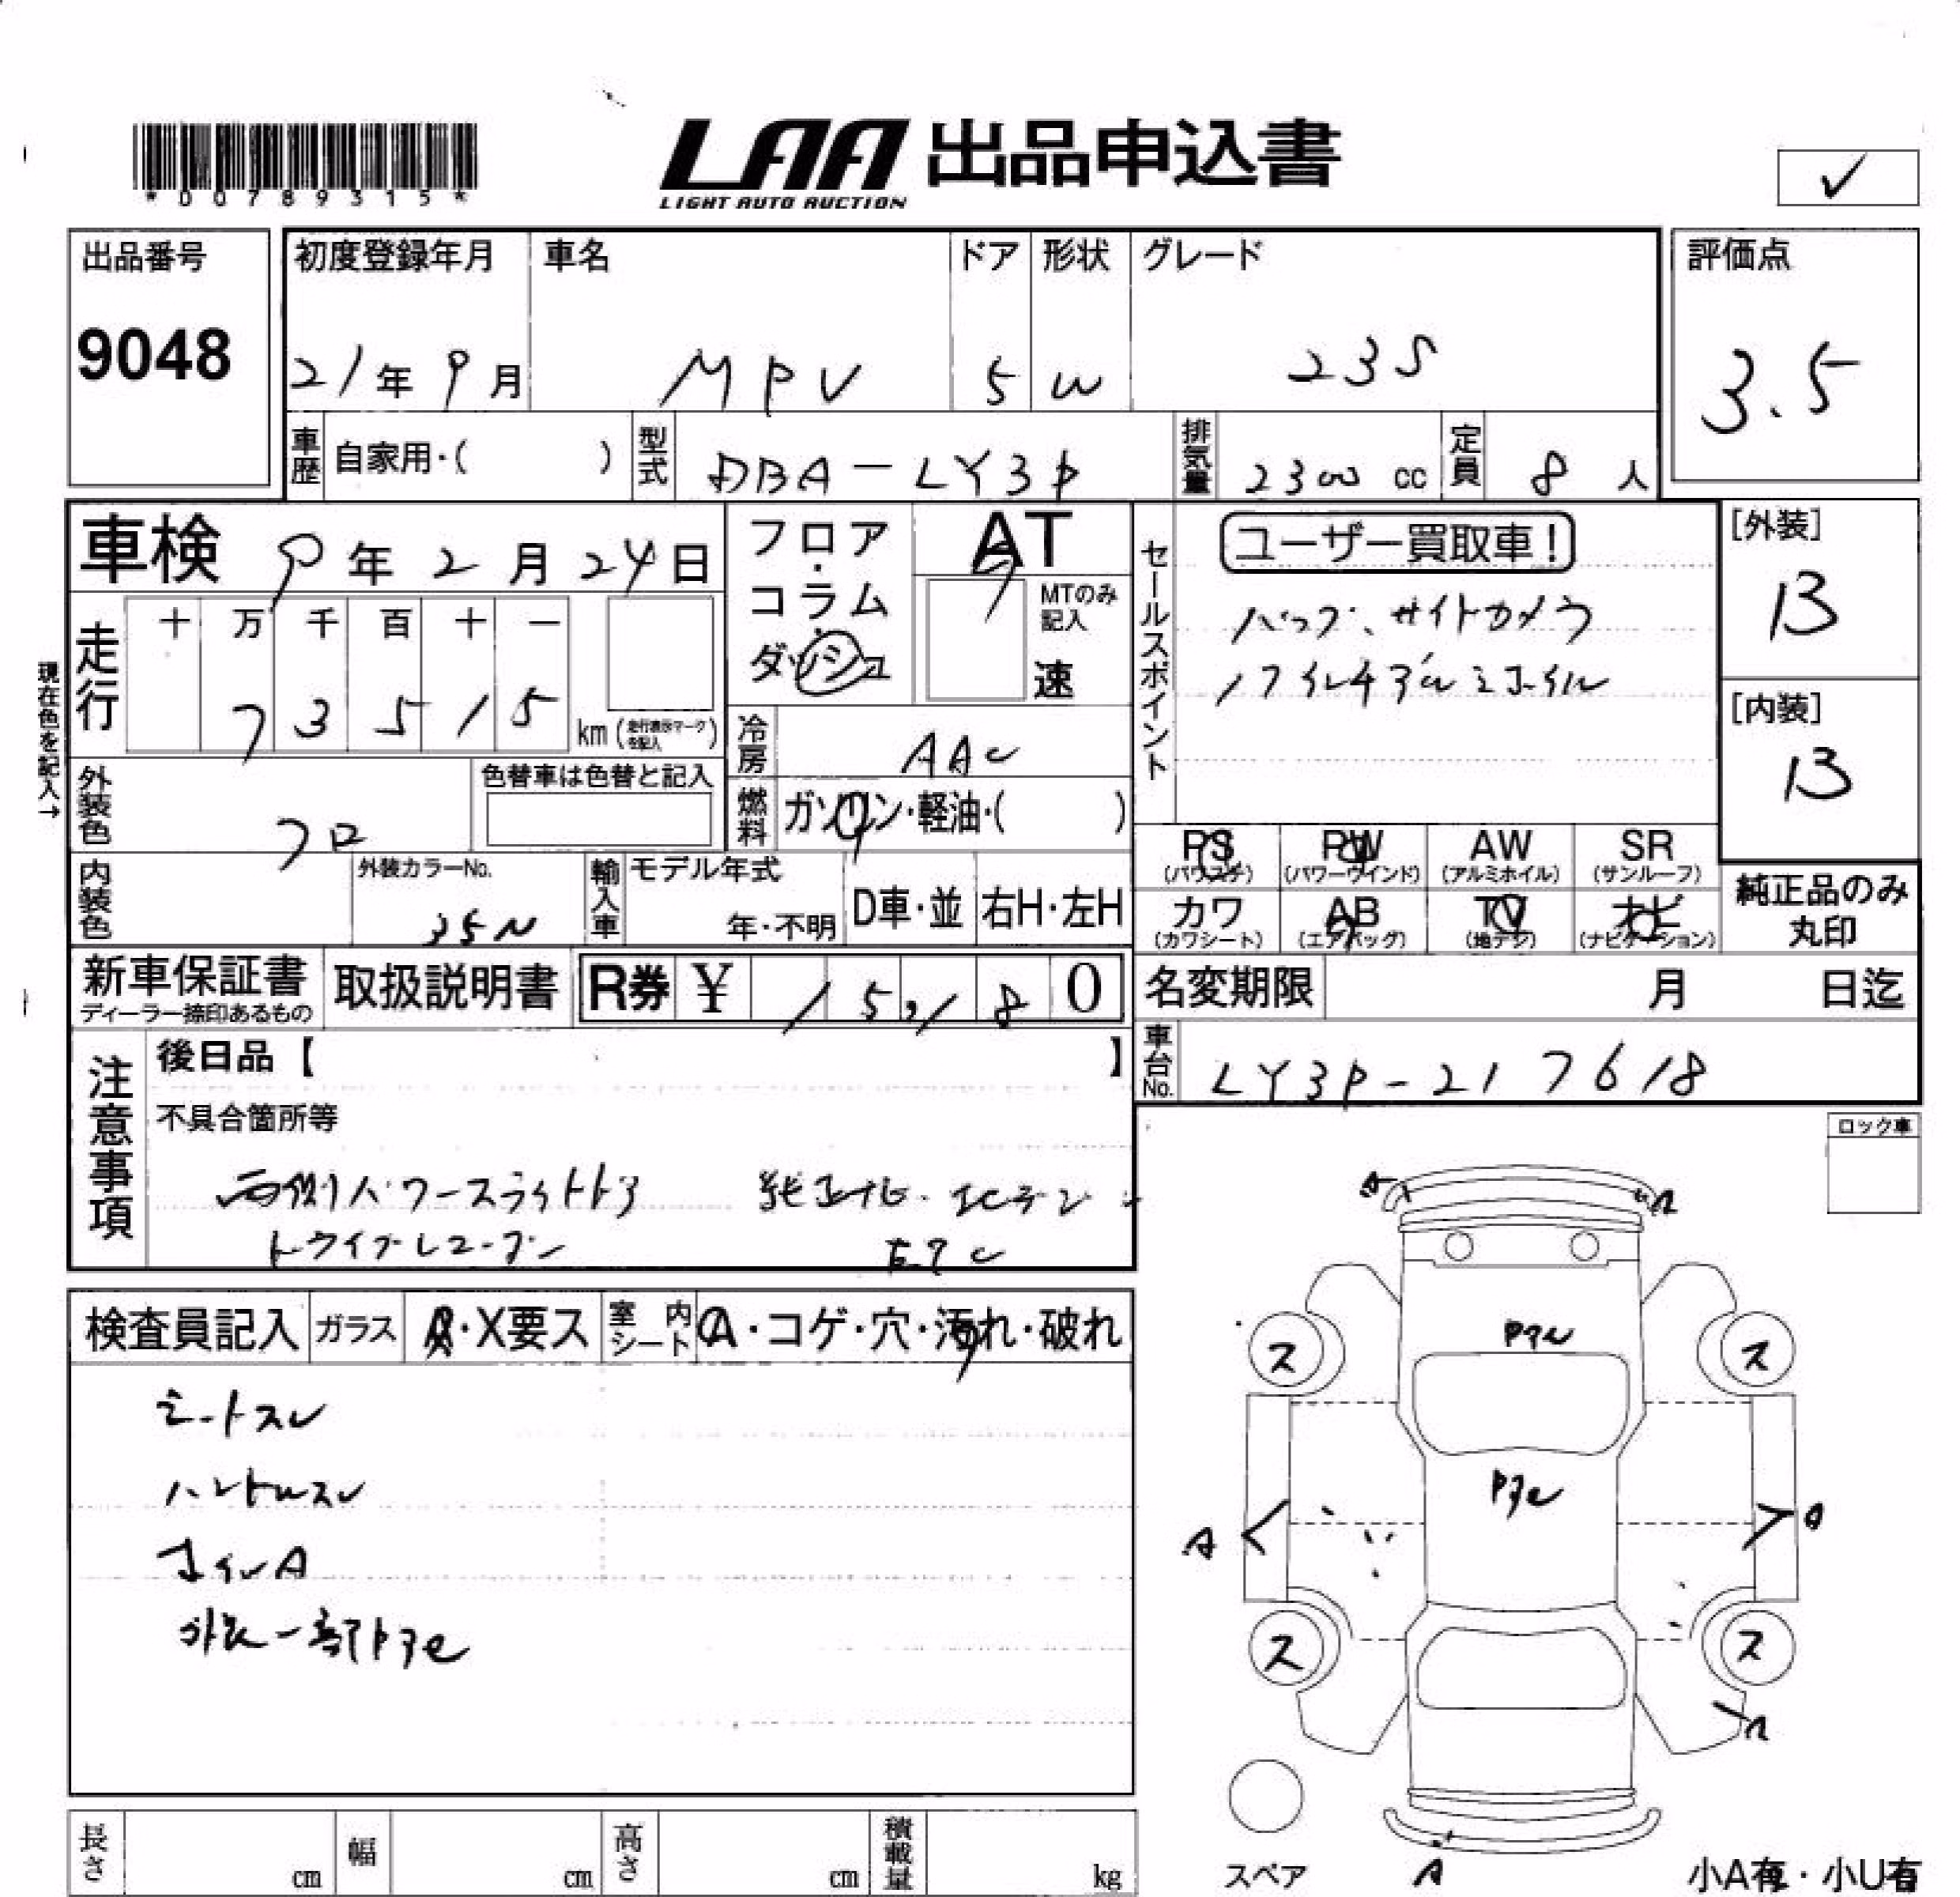 *00789315*
LAA 出品申込書
LIGHT AUTO AUCTION
✓
出品番号
9048
初度登録年月
21年 9月
車名
MPV
ドア
5
形状
W
グレード
23S
評価点
3.5
車歴
自家用・( )
型式
DBA-LY3P
排気量
2300 cc
定員
8 人
車検 9年 2月 24日
フロア・コラム・ダッシュ
AT
MTのみ記入
速
セールスポイント
ユーザー買取車!
バック、サイドカメラ
[外装]
B
[内装]
B
現在色を記入→
走行
十 万 千 百 十 一
7 3 5 1 5
km (走行表示マークを記入)
冷房
AAC
外装色
クロ
色替車は色替と記入
燃料
ガソリン・軽油・( )
内装色
外装カラーNo.
35N
輸入車
モデル年式
年・不明
D車・並
右H・左H
PS
(パワステ)
PW
(パワーウインド)
AW
(アルミホイル)
SR
(サンルーフ)
カワ
(カワシート)
AB
(エアバッグ)
TV
(地デジ)
ナビ
(ナビゲーション)
純正品のみ
丸印
新車保証書
ディーラー捺印あるもの
取扱説明書
R券 ¥ 15,180
名変期限 月 日迄
車台No.
LY3P-217618
注意事項
後日品【 】
不具合箇所等
両側パワースライドドア
ドライブレコーダー
ETC
ロック車
検査員記入
ガラス
A・X要ス
室内シート
A・コゲ・穴・汚れ・破れ
シートスレ
ハンドルスレ
ホイルA
外装一部トアセ
A
A
トアセ
ス
ス
トアセ
A
A
ス
ス
A
A
スペア
長さ cm
幅 cm
高さ cm
積載量 kg
小A有・小U有